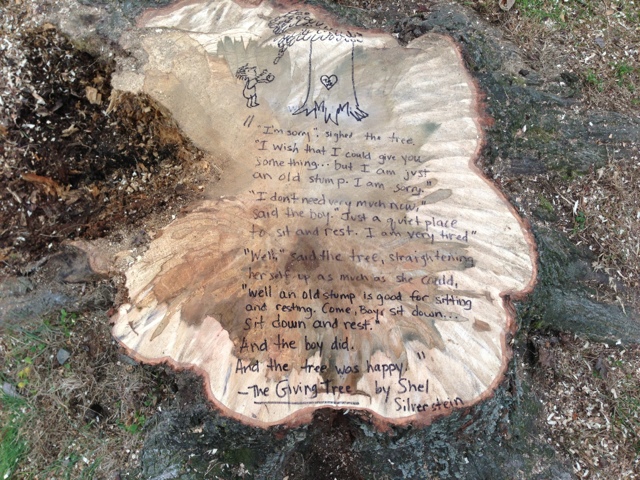 " "I'm sorry", sighed the tree.
"I wish that I could give you
something... but I am just
an old stump. I am sorry."
"I don't need very much now,"
said the boy. "Just a quiet place
to sit and rest. I am very tired"
"Well," said the tree, straightening
her self up as much as she could,
"well an old stump is good for sitting
and resting. Come, Boy, sit down...
Sit down and rest."
And the boy did.
And the tree was happy. "
- The Giving Tree by Shel
Silverstein